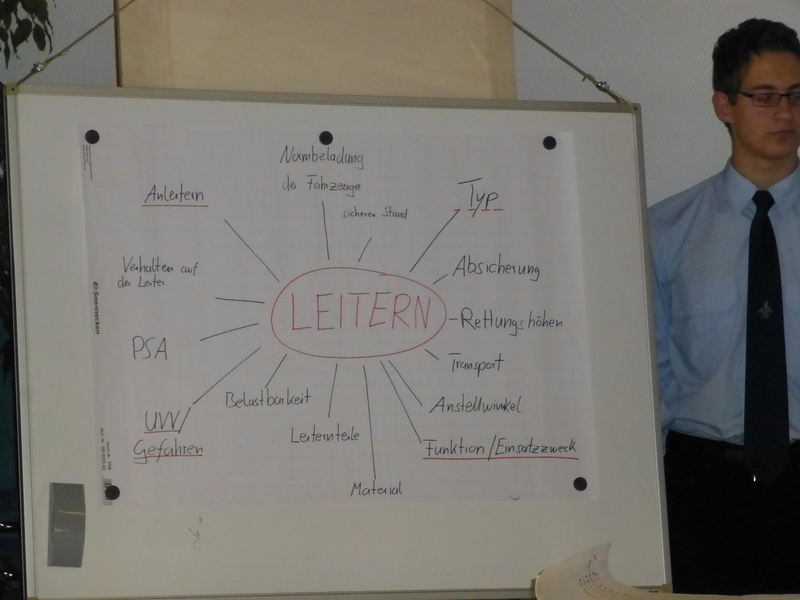 Normbeladung
der Fahrzeuge
sicherer Stand
Anleitern
Typ
Verhalten auf
der Leiter
Absicherung
LEITERN
Rettungshöhen
PSA
Transport
Belastbarkeit
Anstellwinkel
UVV/
Gefahren
Leiternteile
Funktion/Einsatzzweck
Material
Soennecken